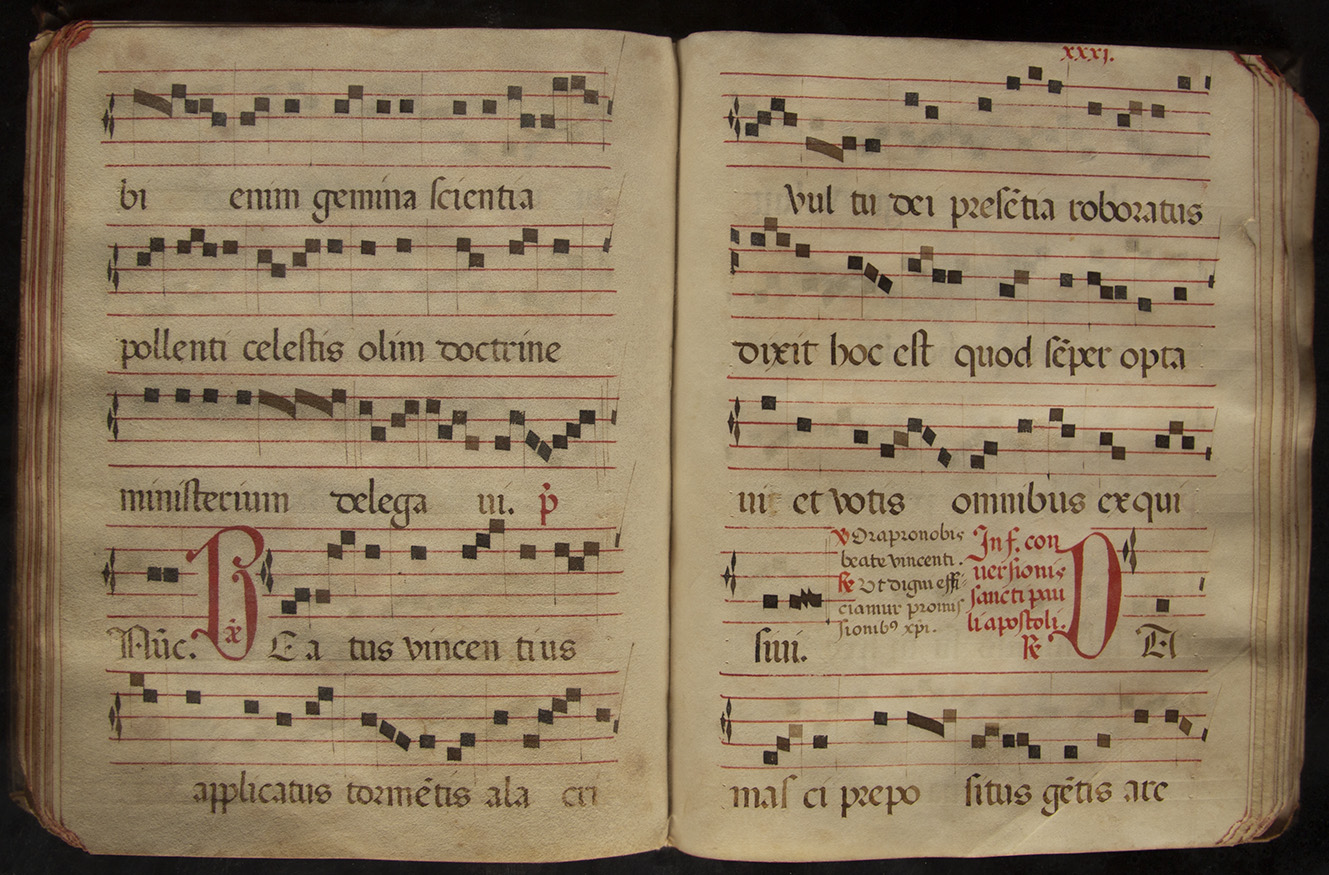 bi enim gemina scientia
pollenti celestis olim doctrine
ministerium delega ui. p̃
Nūc. BEatus vincentius
applicatus tormētis ala cri
xxxi.
vul tu dei presētia roboratus
dixit hoc est quod sēper opta
uit et votis omnibus exqui
siui.
℣ Ora pro nobis
beate vincenti.
℟ Ut digni effi-
ciamur promis
sionibꝰ xp̄i.
In f. con
uersionis
sancti pau
li apostoli.
℟
DA
mas ci prepo situs gētis are